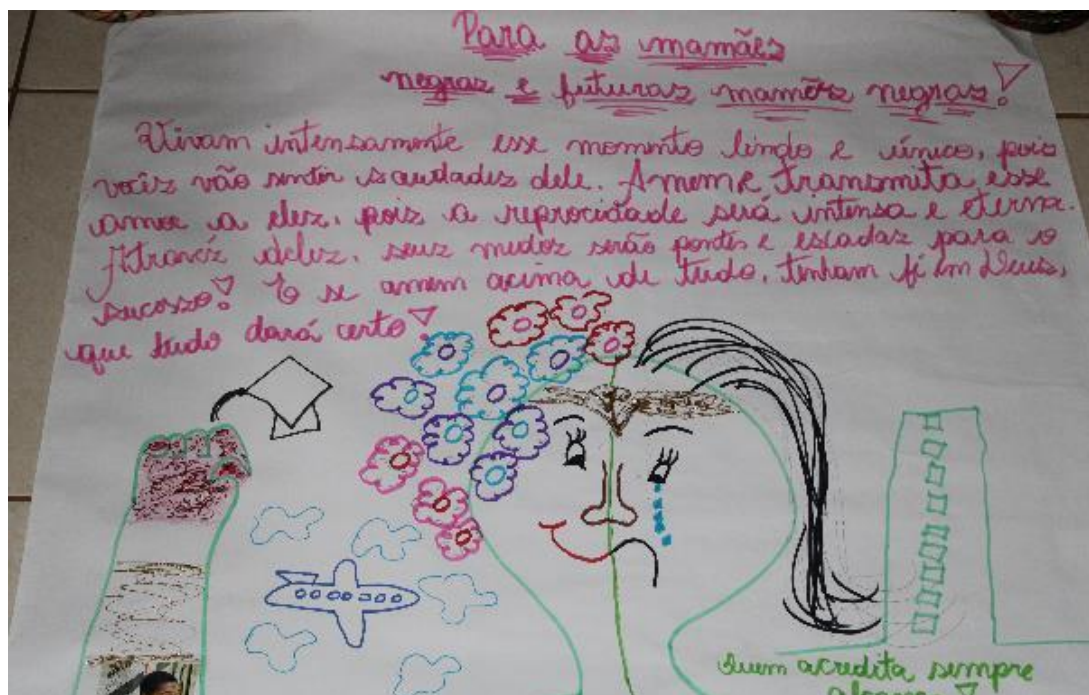 Para as mamães
negras e futuras mamães negras!
Vivam intensamente esse momento lindo e único, pois
vocês vão sentir saudades dele. Amem e transmita esse
amor a eles, pois a reprocidade será intensa e eterna.
Através deles, seus medos serão pontes e escadas para o
sucosso! E se amem acima de tudo, tenham fé em Deus,
que tudo dará certo!
Quem acredita sempre